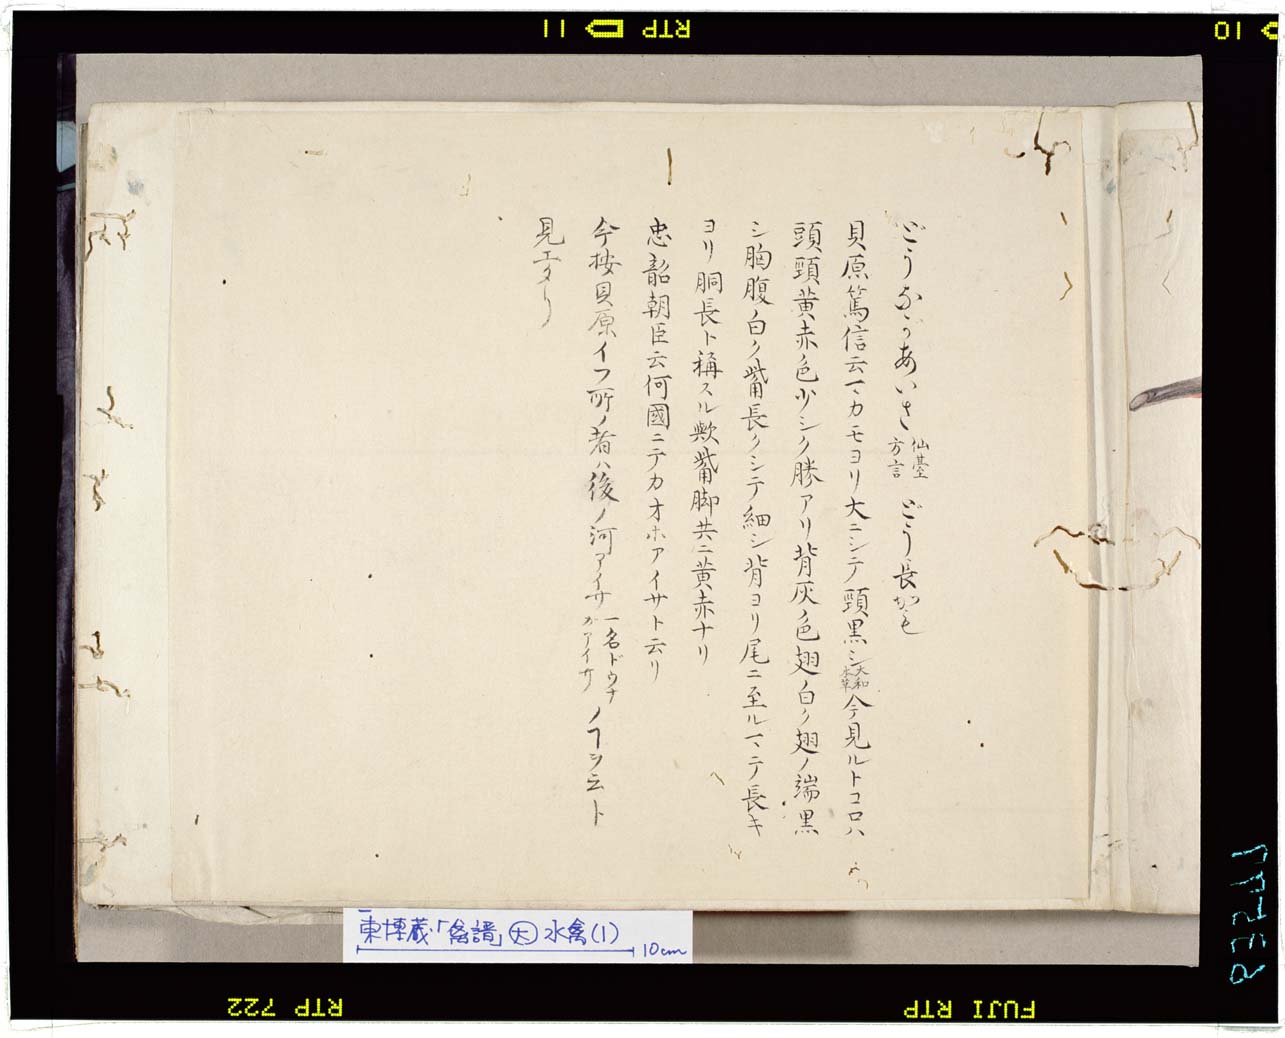 どうながあいさ 仙䑓方言 どう長がも
貝原篤信云マカモヨリ大ニシテ頸黒シ 大和本草 今見ルトコロハ
頭頸黄赤ノ色少シク勝アリ背灰ノ色翅ノ白ク翅ノ端黒
シ胸腹ノ白ク觜長クシテ細シ背ヨリ尾ニ至ルマテ長キ
ヨリ胴長ト稱スル歟觜脚共ニ黄赤ナリ
忠韶朝臣云何國ニテカオホアイサト云リ
今按貝原イフ所ノ者ハ後ノ河アイサ 一名ドウナガアイサ ノヿヲ云ト
見エタリ
東博蔵「禽譜」大 水禽(1)
10cm
RTP 11
10
RTP 722
FUJI RTP